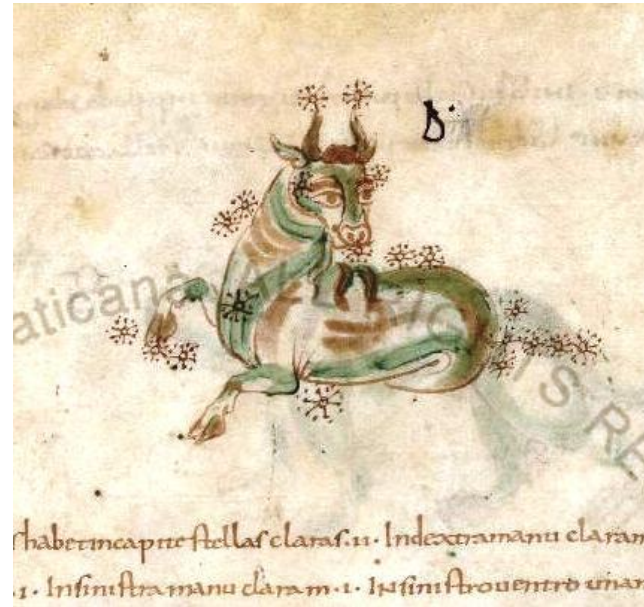 B
aticana
S RE
habet incapite stellas claras .ii. Indextra manu claram
.i. Insinistra manu claram .i. Insinistro uentro unam